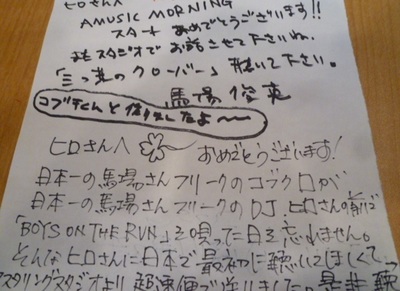 ヒロさんへ
AMUSIC MORNING
スタート おめでとうございます!!
またスタジオで お話させて下さいね。
「三つ葉のクローバー」聴いて下さい。
馬場俊英
コブチくんと作りましたよ〜
ヒロさんへ おめでとうございます!
日本一の馬場さんフリークのコブクロが
日本一の馬場さんフリークのDJ ヒロさんの前で
「BOYS ON THE RUN」を唄った日を忘れません。
そんなヒロさんに日本で最初に聴いてほしくて、
スタリングスタジオより超速便で送りました。是非聴